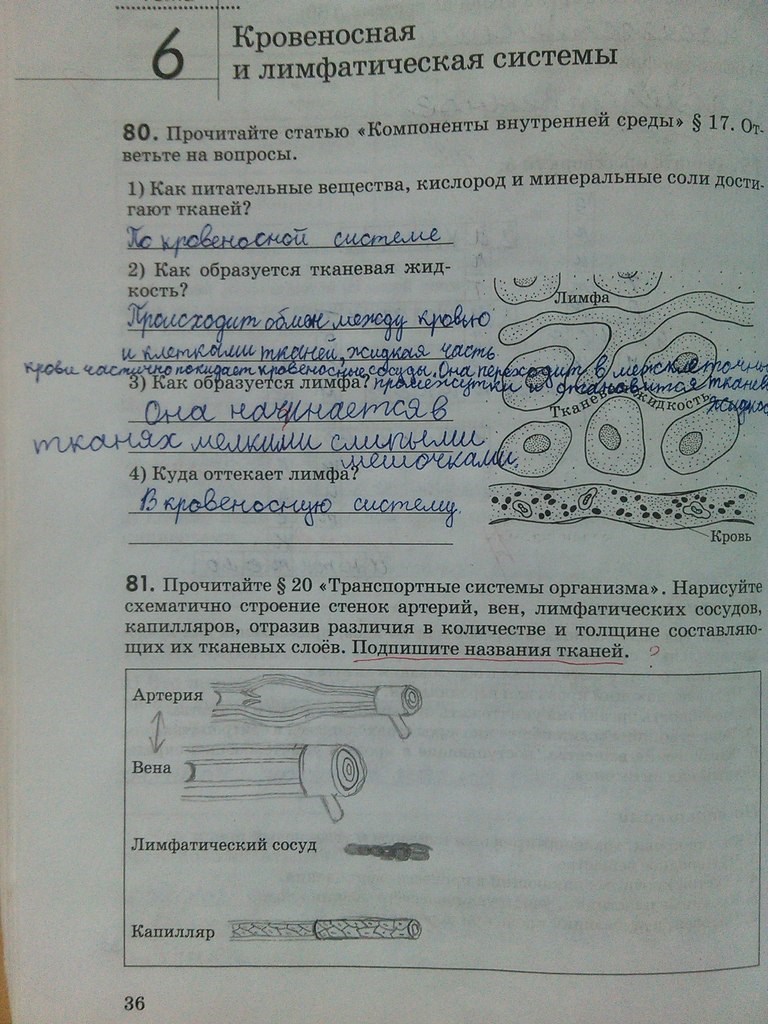 6
Кровеносная
и лимфатическая системы
80. Прочитайте статью «Компоненты внутренней среды» § 17. От-
ветьте на вопросы.
1) Как питательные вещества, кислород и минеральные соли дости-
гают тканей?
По кровеносной системе
2) Как образуется тканевая жид-
кость?
Происходит обмен между кровью
и клетками тканей, жидкая часть
крови частично покидает кровеносные сосуды. Она переходит в межклеточны
промежутки и становится тканев
жидкос
3) Как образуется лимфа?
Она начинается в
тканях мелкими слипыми
мешочками.
4) Куда оттекает лимфа?
В кровеносную систему.
Лимфа
Тканевая жидкость
Кровь
81. Прочитайте § 20 «Транспортные системы организма». Нарисуйте
схематично строение стенок артерий, вен, лимфатических сосудов,
капилляров, отразив различия в количестве и толщине составляю-
щих их тканевых слоёв. Подпишите названия тканей. ?
Артерия
Вена
Лимфатический сосуд
Капилляр
36